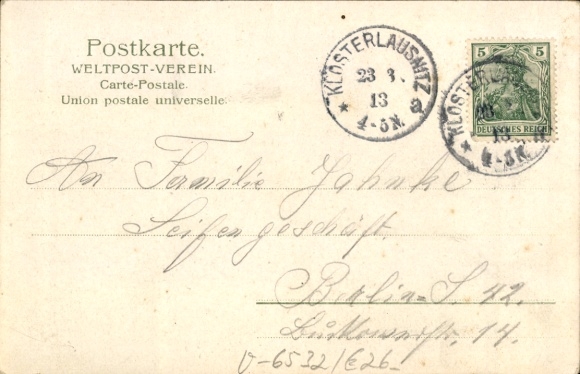 Postkarte.
WELTPOST-VEREIN.
Carte-Postale.
Union postale universelle.
KLOSTERLAUSNITZ
23 3.
13
4-5N.
* a
5 5
DEUTSCHES REICH
KLOSTERLA
23
13
4-5N.
An Familie Jahnke
Seifengeschäft.
Berlin=S. 42.
14.
V-6532/E26-